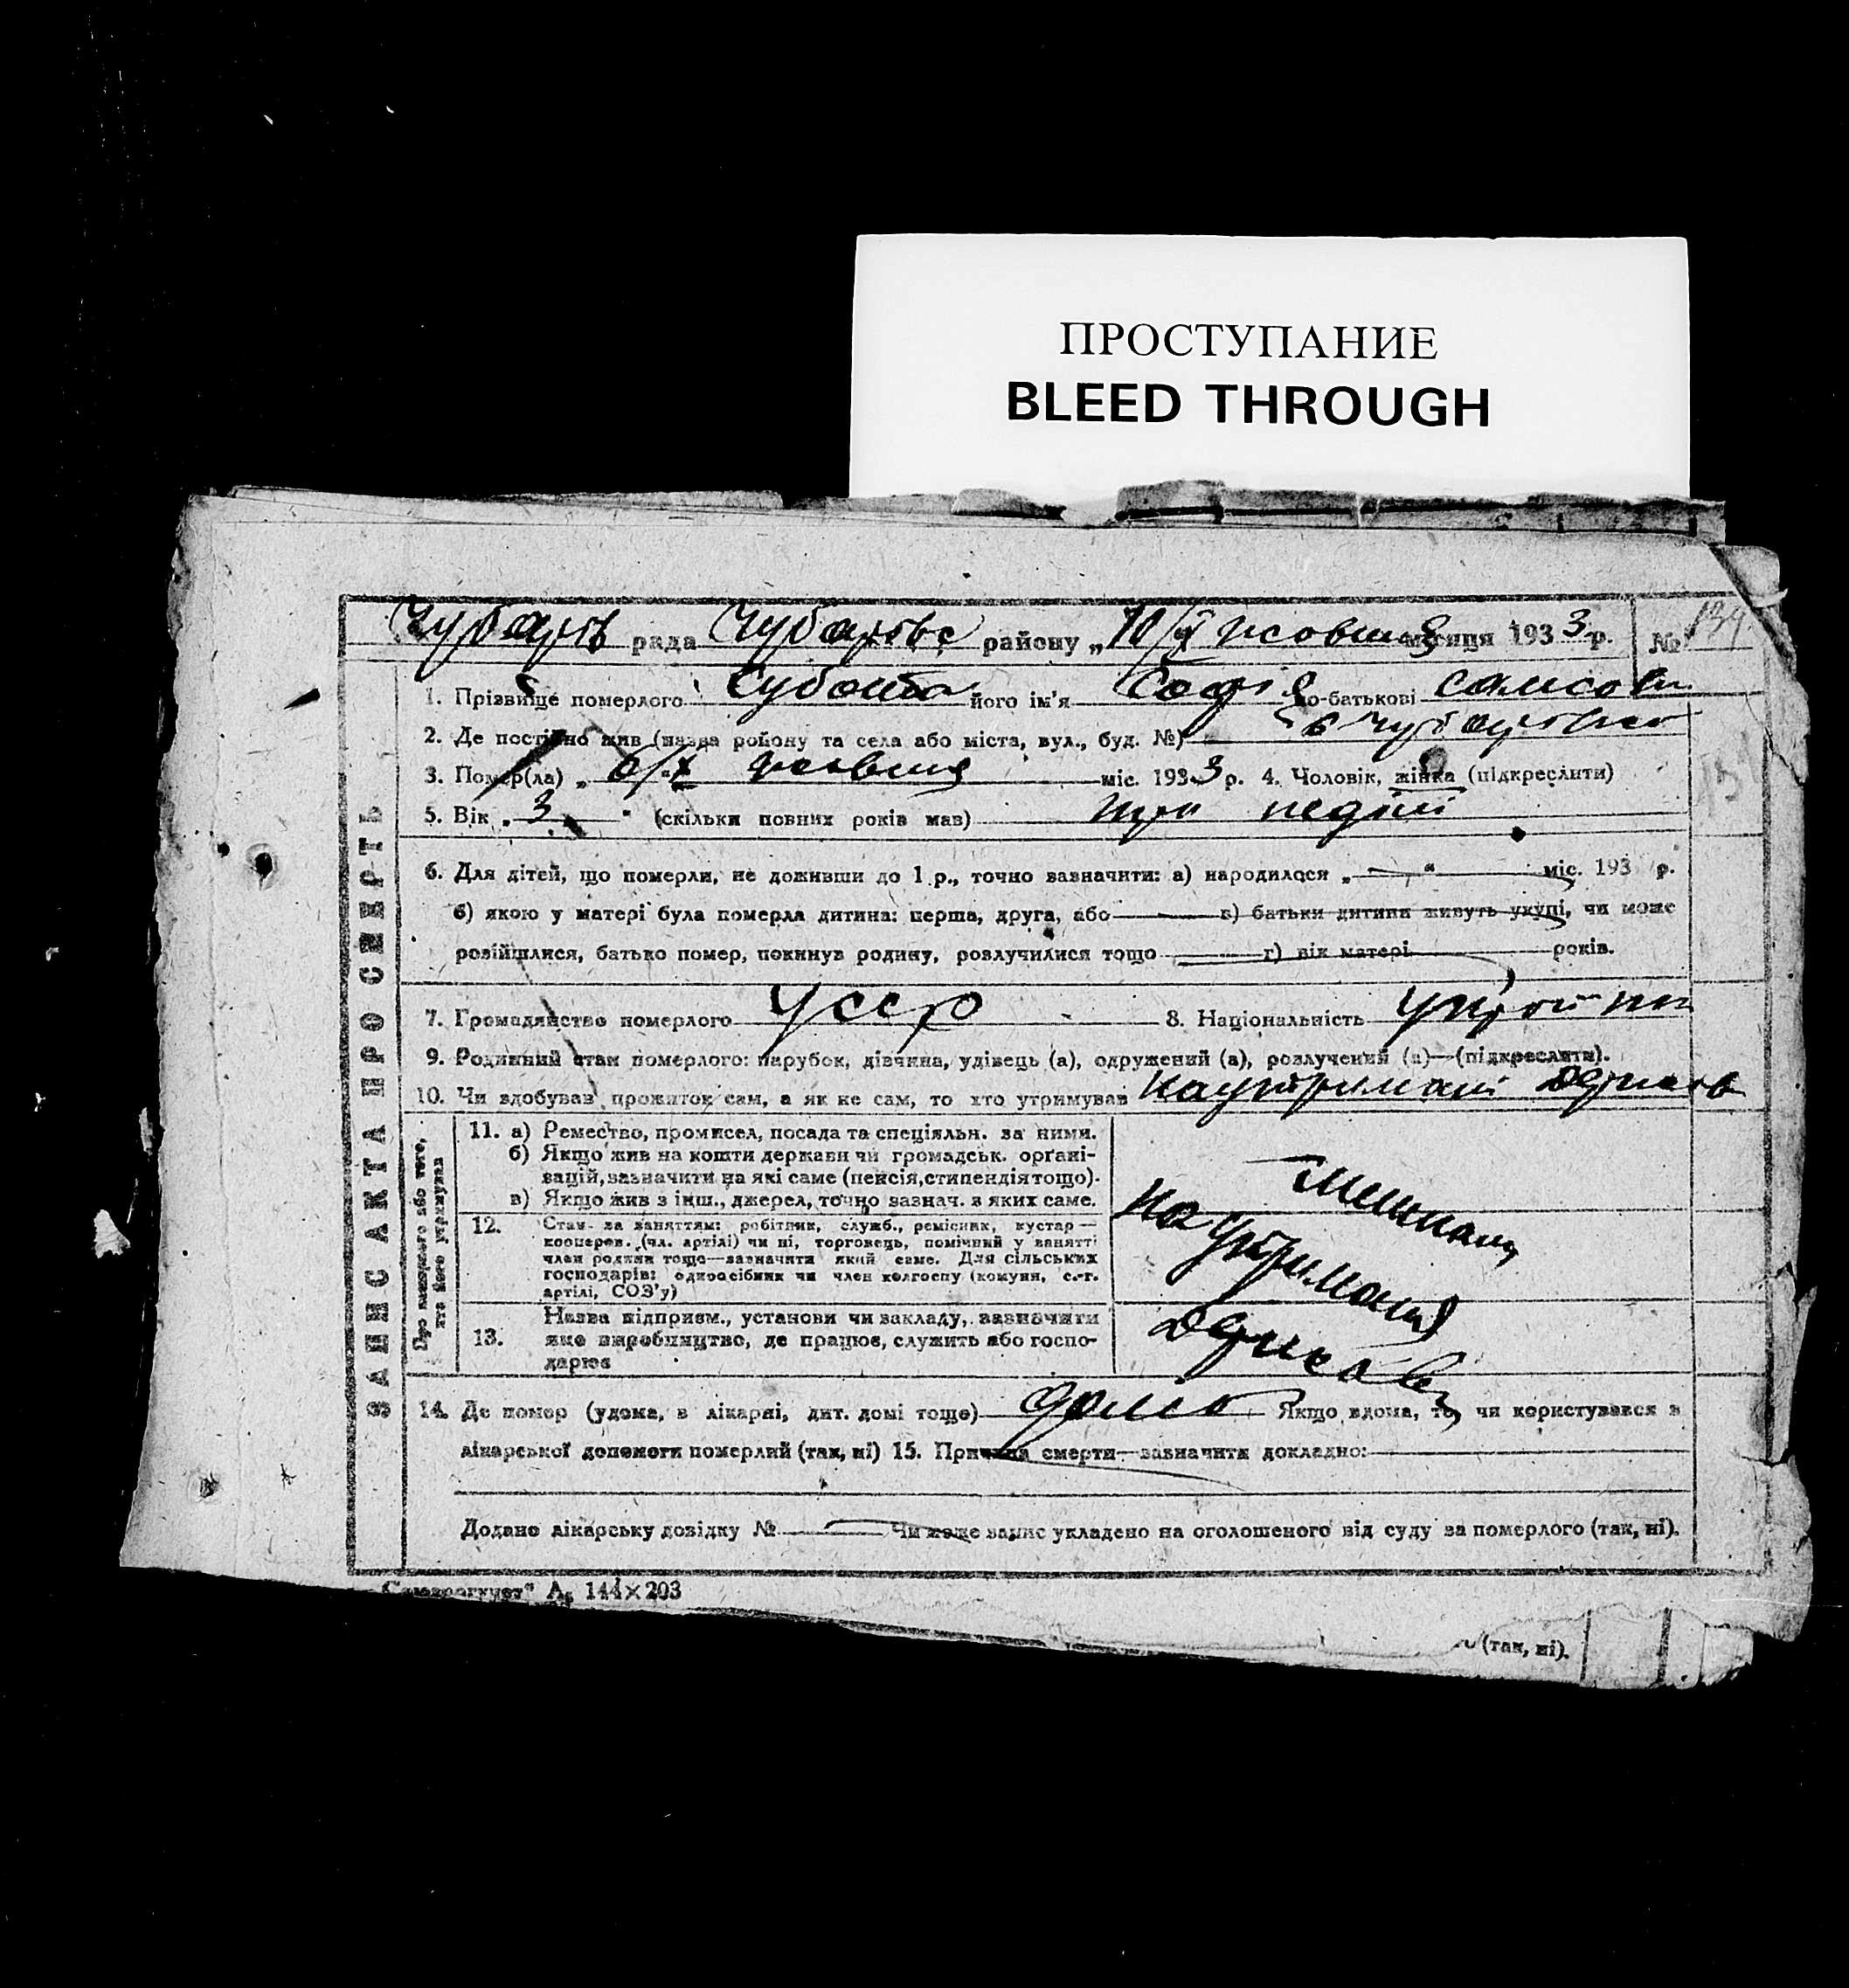 ПРОСТУПАНИЕ
BLEED THROUGH
рада району „10/X жовтня місяця 1933 р. № 134
1. Прізвище померлого Субота його ім'я Софія по-батькові
2. Де постійно жив (назва району та села або міста, вул., буд. №)
3. Помер(ла) „ 6/X жовтня міс. 1933 р. 4. Чоловік, жінка (підкреслити)
5. Вік „ 3 " (скільки повних років мав) три неділі
6. Для дітей, що померли, не доживши до 1 р., точно зазначити: а) народилося „ — " міс. 193 р.
б) якою у матері була померла дитина: перша, друга, або в) батьки дитини живуть укупі, чи може
розійшлися, батько помер, покинув родину, розлучилися тощо г) вік матері років.
7. Громадянство померлого УССР 8. Національність
9. Родинний стан померлого: парубок, дівчина, удівець (а), одружений (а), розлучений (а)—(підкреслити).
10. Чи здобував прожиток сам, а як не сам, то хто утримував
ЗАПИС АКТА ПРО СМЕРТЬ
Про померлого або того,
хто його утримував
11. а) Ремество, промисел, посада та спеціяльн. за ними.
б) Якщо жив на кошти держави чи громадськ. органі-
зацій, зазначити на які саме (пенсія, стипендія тощо).
в) Якщо жив з інш., джерел, точно зазнач. з яких саме.
12. Стан за заняттям: робітник, служб., ремісник, кустар—
кооперов. (чл. артілі) чи ні, торговець, помічний у занятті
член родини тощо—зазначити який саме. Для сільських
господарів: одноосібник чи член колгоспу (комуни, с.-г.
артілі, СОЗ'у)
13. Назва підприєм., установи чи закладу, зазначити
яке виробництво, де працює, служить або госпо-
дарює
на
14. Де помер (удома, в лікарні, дит. домі тощо) дома Якщо вдома, то, чи користувався з
лікарської допомоги померлий (так, ні) 15. Причина смерти—зазначити докладно:
Додано лікарську довідку № Чи може запис укладено на оголошеного від суду за померлого (так, ні).
А₅ 144×203
(так, ні).